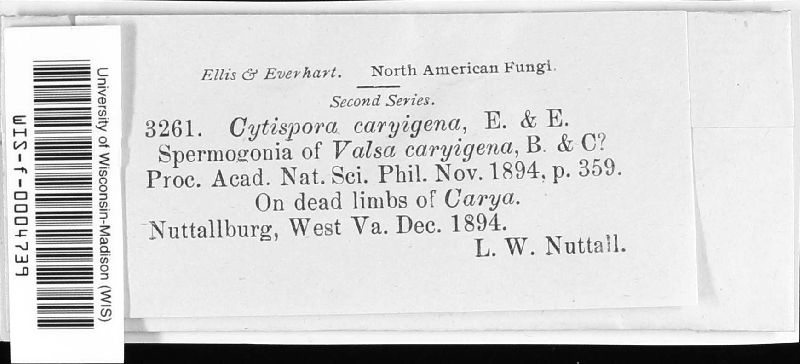 Ellis & Everhart. North American Fungi.
Second Series.
3261. Cytispora caryigena, E. & E.
Spermogonia of Valsa caryigena, B. & C?
Proc. Acad. Nat. Sci. Phil. Nov. 1894, p. 359.
On dead limbs of Carya.
Nuttallburg, West Va. Dec. 1894.
L. W. Nuttall.
University of Wisconsin-Madison (WIS)
WIS-f-0004739